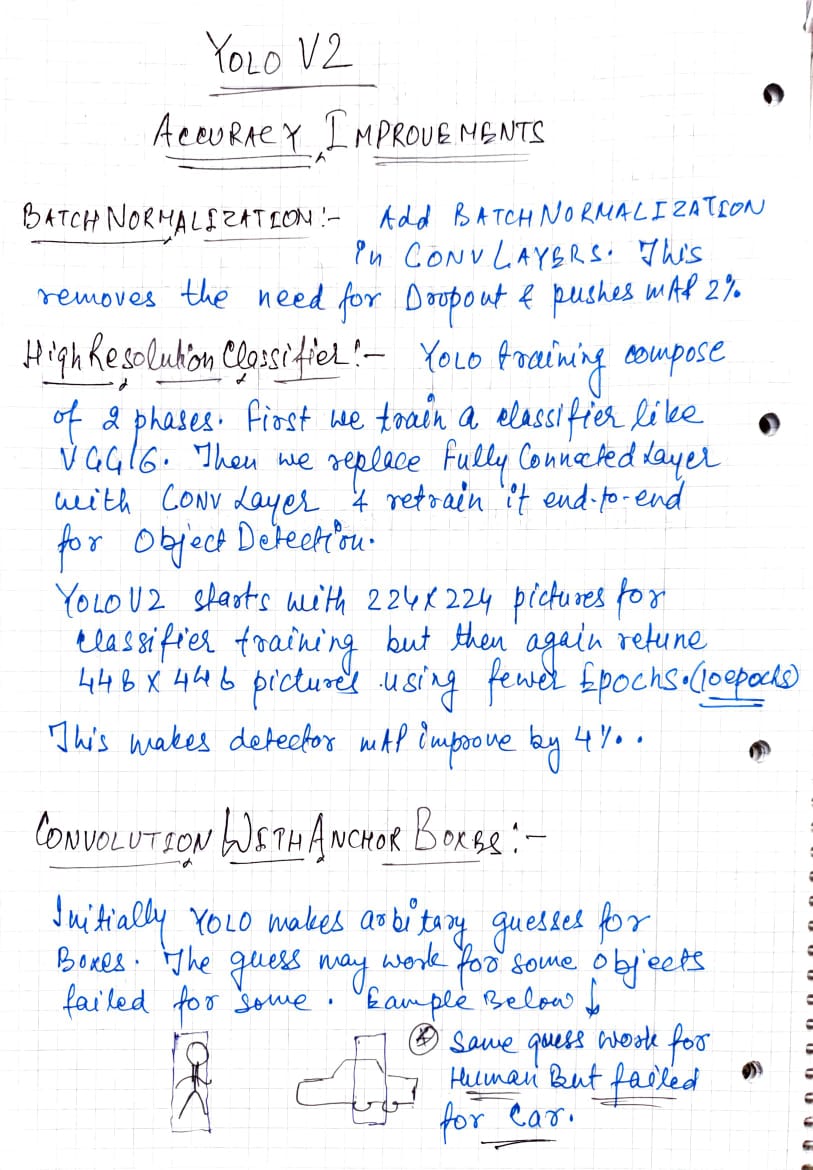 YOLO V2
ACCURACY IMPROVEMENTS
BATCH NORMALIZATION :- Add BATCH NORMALIZATION
in CONV LAYERS. This
removes the need for Dropout & pushes mAP 2%
High Resolution Classifier :- YOLO training compose
of 2 phases. First we train a classifier like
VGG16. Then we replace Fully Connected Layer
with CONV Layer & retrain it end-to-end
for Object Detection.
YOLO V2 starts with 224 x 224 pictures for
classifier training but then again retune
448 x 448 pictures using fewer Epochs. (10 epochs)
This makes detector mAP improve by 4%.
CONVOLUTION WITH ANCHOR BOXES :-
Initially YOLO makes arbitary guesses for
Boxes. The guess may work for some objects
failed for some. Eample Below ↓
* Same guess work for
Human But failed
for Car.